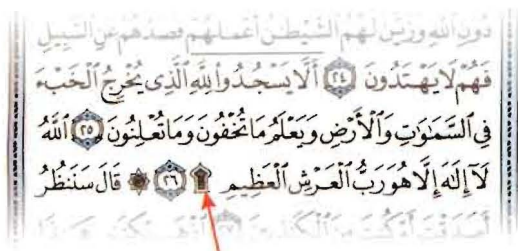 دُونِ ٱللَّهِ وَزَيَّنَ لَهُمُ ٱلشَّيْطَٰنُ أَعْمَٰلَهُمْ فَصَدَّهُمْ عَنِ ٱلسَّبِيلِ
فَهُمْ لَا يَهْتَدُونَ ٢٤ أَلَّا يَسْجُدُوا۟ لِلَّهِ ٱلَّذِى يُخْرِجُ ٱلْخَبْءَ
فِى ٱلسَّمَٰوَٰتِ وَٱلْأَرْضِ وَيَعْلَمُ مَا تُخْفُونَ وَمَا تُعْلِنُونَ ٢٥ ٱللَّهُ
لَآ إِلَٰهَ إِلَّا هُوَ رَبُّ ٱلْعَرْشِ ٱلْعَظِيمِ ۩ ٢٦ ۞ قَالَ سَنَنظُرُ
أَصَدَقْتَ أَمْ كُنتَ مِنَ ٱلْكَٰذِبِينَ